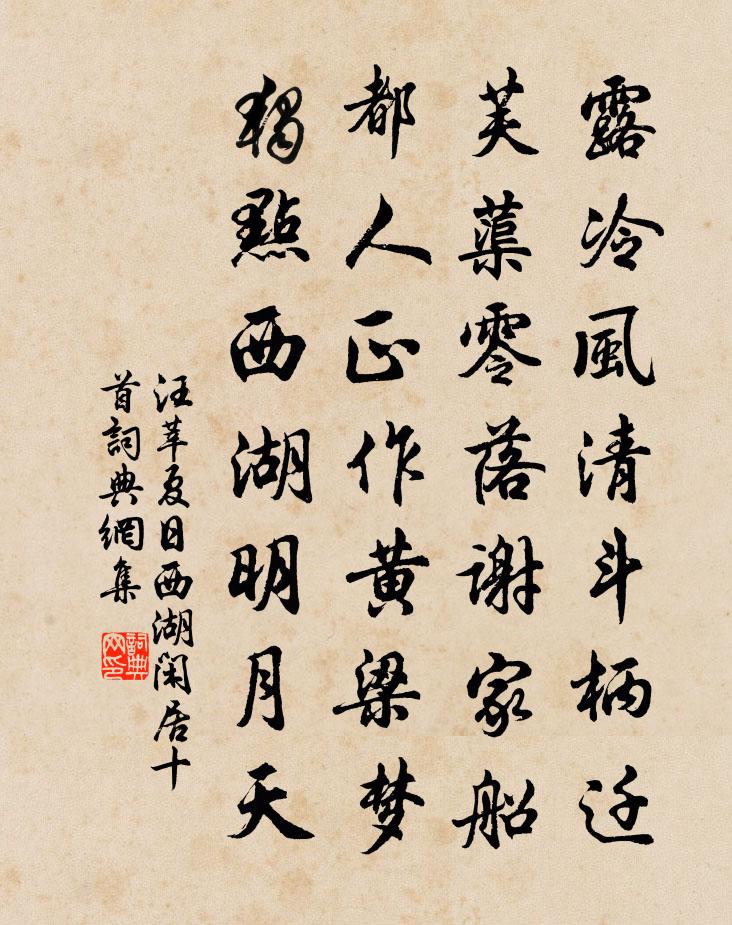 露冷風清斗柄迁
芙蕖零落謝家船
都人正作黄梁梦
獨點西湖明月天
汪莘夏日西湖閑居十
首詞典網集
詞典
网印